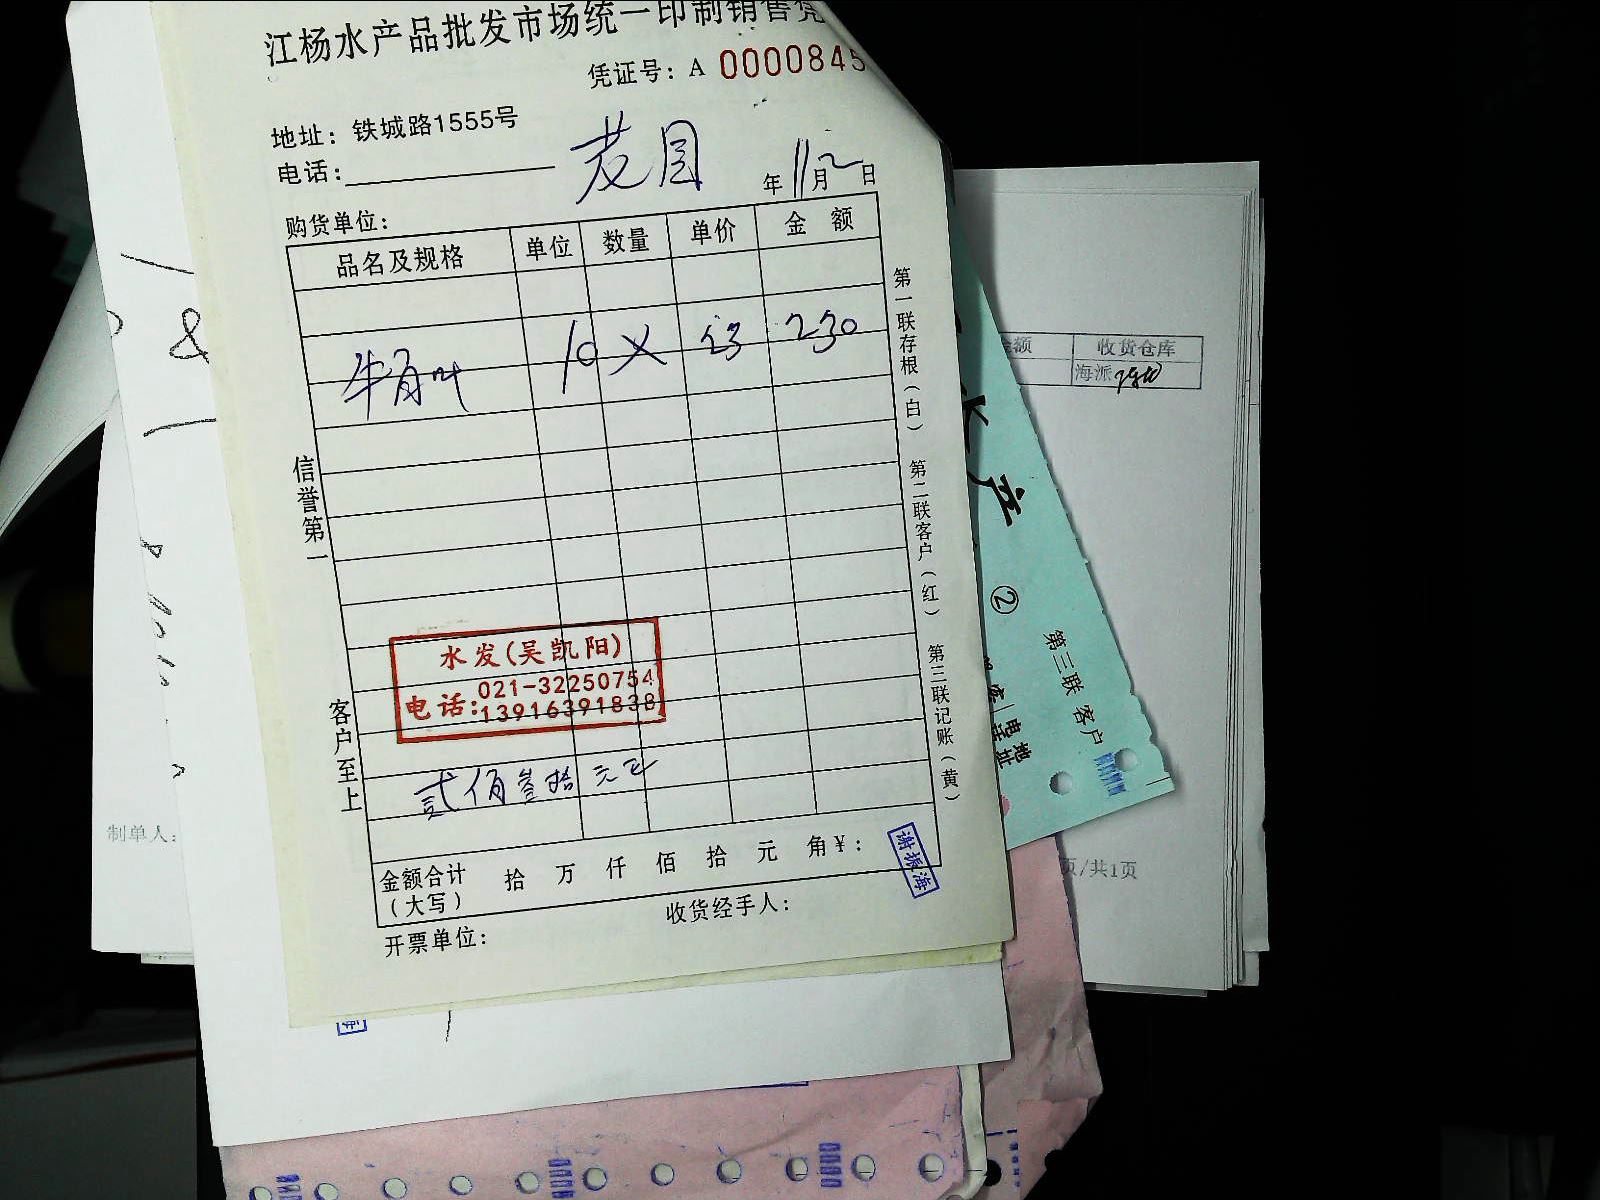 江杨水产品批发市场统一印制销售凭
凭证号：A 0000845
地址：铁城路1555号
电话：
年11月2日
购货单位：
品名及规格 单位 数量 单价 金 额
牛百叶 10 × 23 230
信誉第一
客户至上
第一联存根（白） 第二联客户（红） 第三联记账（黄）
水发(吴凯阳)
电话:021-32250754
13916391838
贰佰叁拾元正
金额合计 拾 万 仟 佰 拾 元 角¥：
（大写）
谢振海
开票单位： 收货经手人：
金额 收货仓库
海派
水产
②
第三联 客户
电话
地址
制单人：
页/共1页